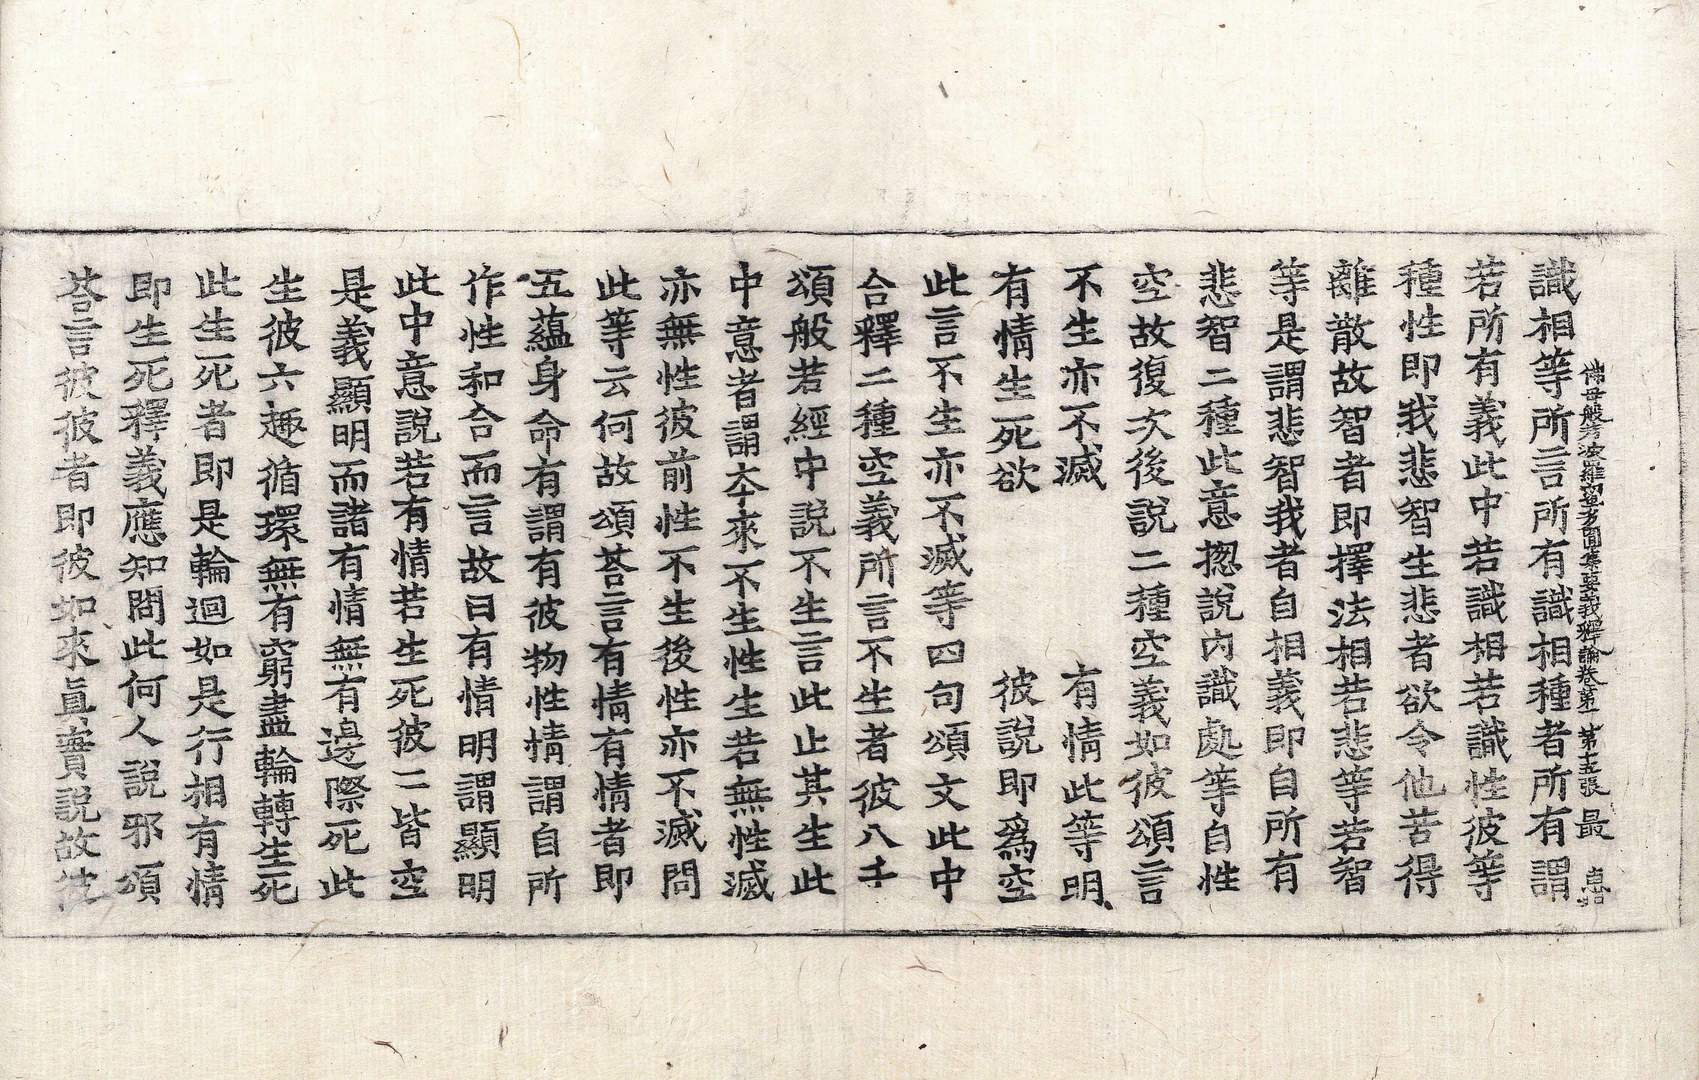 佛母般若波羅蜜多圓集要義釋論卷第一 第十五張 最
識相等所言所有識相種者所有謂
若所有義此中若識相若識性彼等
種性即我悲智生悲者欲令他苦得
離散故智者即擇法相若悲等若智
等是謂悲智我者自相義即自所有
悲智二種此意揔說內識處等自性
空故復次後說二種空義如彼頌言
不生亦不滅 有情此等明
有情生死欲 彼說即爲空
此言不生亦不滅等四句頌文此中
合釋二種空義所言不生者彼八千
頌般若經中說不生言此止其生此
中意者謂本來不生性生若無性滅
亦無性彼前性不生後性亦不滅問
此等云何故頌荅言有情有情者即
五蘊身命有謂有彼物性情謂自所
作性和合而言故曰有情明謂顯明
此中意說若有情若生死彼二皆空
是義顯明而諸有情無有邊際死此
生彼六趣循環無有窮盡輪轉生死
此生死者即是輪迴如是行相有情
即生死釋義應知問此何人說邪頌
荅言彼彼者即彼如來眞實說故彼